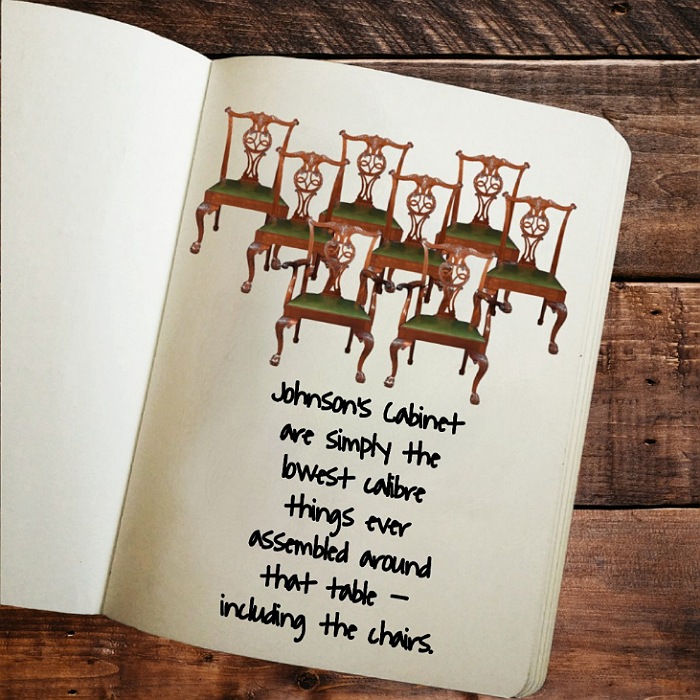 Johnson's Cabinet
are simply the
lowest calibre
things ever
assembled around
that table –
including the chairs.